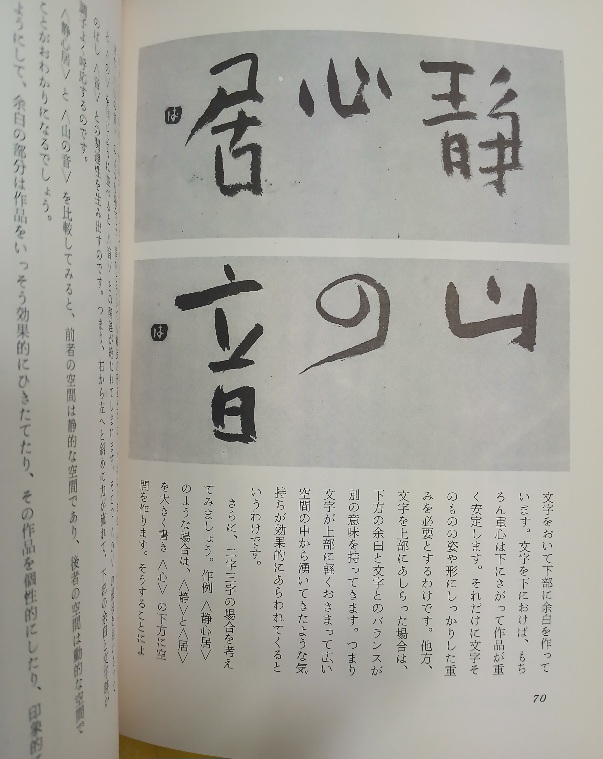 静心居
は
山の音
は
文字をおいて下部に余白を作って
います。文字を下におけば、もち
ろん重心は下にさがって作品が重
く安定します。それだけに文字そ
のものの姿や形にしっかりした重
みを必要とするわけです。他方、
文字を上部にあしらった場合は、
下方の余白と文字とのバランスが
別の意味を持ってきます。つまり
文字が上部に軽くおさまって広い
空間の中から湧いてきたような気
持ちが効果的にあらわれてくると
いうわけです。
さらに、二字三字の場合を考え
てみましょう。作例〈静心居〉
のような場合は、〈静〉と〈居〉
を大きく書き〈心〉の下方に空
間を作ります。そうすることによ
70
調子よく呼応するのです。
〈静心居〉と〈山の音〉を比較してみると、前者の空間は静的な空間であり、後者の空間は動的な空間で
ことがおわかりになるでしょう。
ようにして、余白の部分は作品をいっそう効果的にひきたてたり、その作品を個性的にしたり、印象的